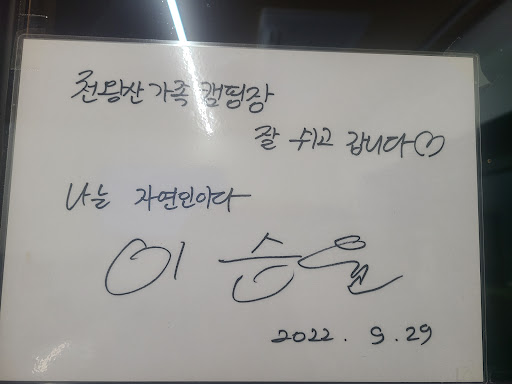 천왕산 가족 캠핑장
잘 쉬고 갑니다♡
나는 자연인이다
이승윤
2022. 9. 29